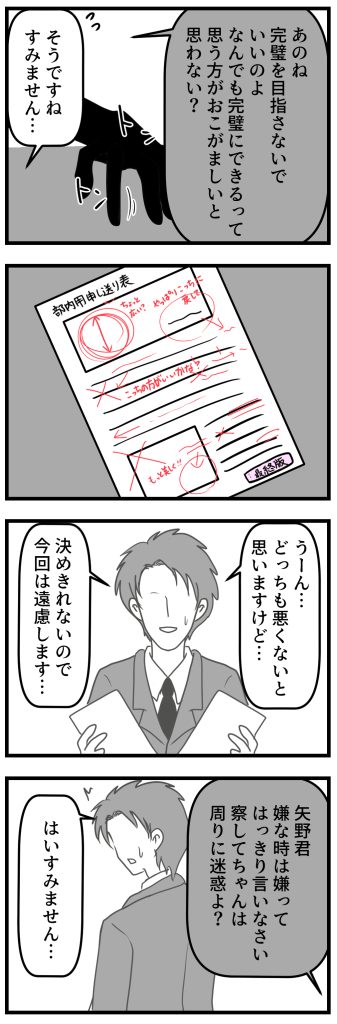 あのね
完璧を目指さないで
いいのよ
なんでも完璧にできるって
思う方がおこがましいと
思わない?
そうですね
すみません…
トン
トン
部内用申し送り表
ちょっと
広い?
やっぱりこっちに
戻して
こっちの方がいいかな?
もっと美しく!!
最終版
うーん…
どっちも悪くないと
思いますけど…
決めきれないので
今回は遠慮します…
矢野君
嫌な時は嫌って
はっきり言いなさい
察してちゃんは
周りに迷惑よ?
はいすみません…